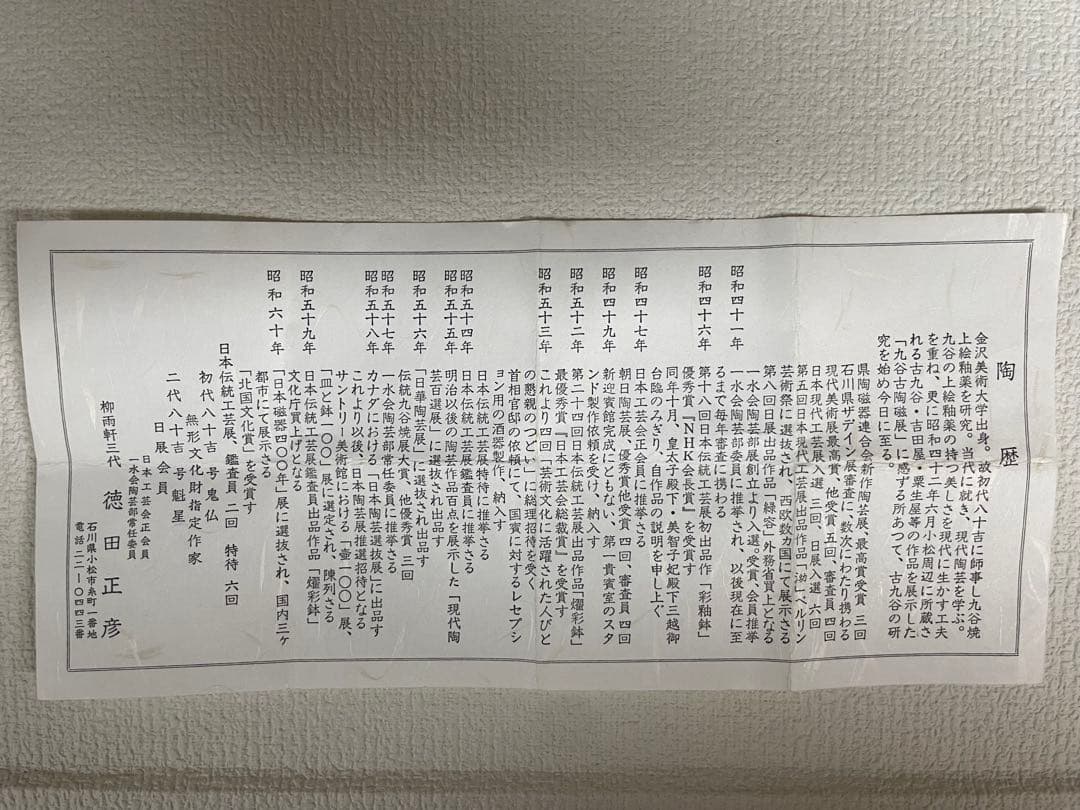 陶歴
金沢美術大学出身。故初代八十吉に師事し九谷焼
上絵釉薬を研究。当代に就き、現代陶芸を学ぶ。
九谷の上絵釉薬の持つ美しさを現代に生かす工夫
を重ね、更に昭和四十二年六月小松周辺に所蔵さ
れる古九谷・吉田屋・粟生屋等の作品を展示した
「九谷古陶磁展」に感ずる所あつて、古九谷の研
究を始め今日に至る。
県陶磁器連合会新作陶芸展、最高賞受賞 三回
石川県デザイン展審査に、数次にわたり携わる
現代美術展最高賞、他受賞 五回、審査員 四回
日本現代工芸展入選 三回、日展入選 六回
第五回日本現代工芸展出品作品「泑」ベルリン
芸術祭に選抜され、西欧数カ国にて展示さる
昭和四十一年 第八回日展出品作品「緑容」外務省買上となる
一水会陶芸部展創立より入選。受賞、会員推挙
一水会陶芸部委員に推挙され、以後現在に至
るまで毎年審査に携わる
昭和四十六年 第十八回日本伝統工芸展初出品作「彩釉鉢」
優秀賞『NHK会長賞』を受賞す
同年十月、皇太子殿下・美智子妃殿下三越御
台臨のみぎり、自作品の説明を申し上ぐ
昭和四十七年 日本工芸会正会員に推挙さる
朝日陶芸展、優秀賞他受賞 四回、審査員 四回
昭和四十九年 新迎賓館完成にともない、第一貴賓室のスタ
ンド製作依頼を受け、納入す
昭和五十二年 第二十四回日本伝統工芸展出品作品「燿彩鉢」
最優秀賞『日本工芸会総裁賞』を受賞す
昭和五十三年 これより四回「芸術文化に活躍された人びと
の懇親のつどい」に総理招待を受く
首相官邸の依頼にて、国賓に対するレセプシ
ョン用の酒器製作、納入す
日本伝統工芸展特待に推挙さる
昭和五十四年 日本伝統工芸展鑑査員に推挙さる
昭和五十五年 明治以後の陶芸作品百点を展示した「現代陶
芸百選展」に選抜され出品す
昭和五十六年 「日華陶芸展」に選抜され出品す
伝統九谷焼展大賞、他優秀賞 三回
昭和五十七年 一水会陶芸部常任委員に推挙さる
昭和五十八年 カナダにおける「日本陶芸選抜展」に出品す
これより以後、日本陶芸展推選招待となる
サントリー美術館における「壷一〇〇」展、
「皿と鉢一〇〇」展に選定され、陳列さる
昭和五十九年 日本伝統工芸展鑑査員出品作品「燿彩鉢」
文化庁買上げとなる
昭和六十年 「日本磁器四〇〇年」展に選抜され、国内三ヶ
都市にて展示さる
「北国文化賞」を受賞す
日本伝統工芸展、鑑査員 二回 特待 六回
初代八十吉号鬼仏
無形文化財指定作家
二代八十吉号魁星
日展会員
日本工芸会正会員
一水会陶芸部常任委員
柳雨軒三代 徳田正彦
石川県小松市糸町一番地
電話 二二-〇四四三番